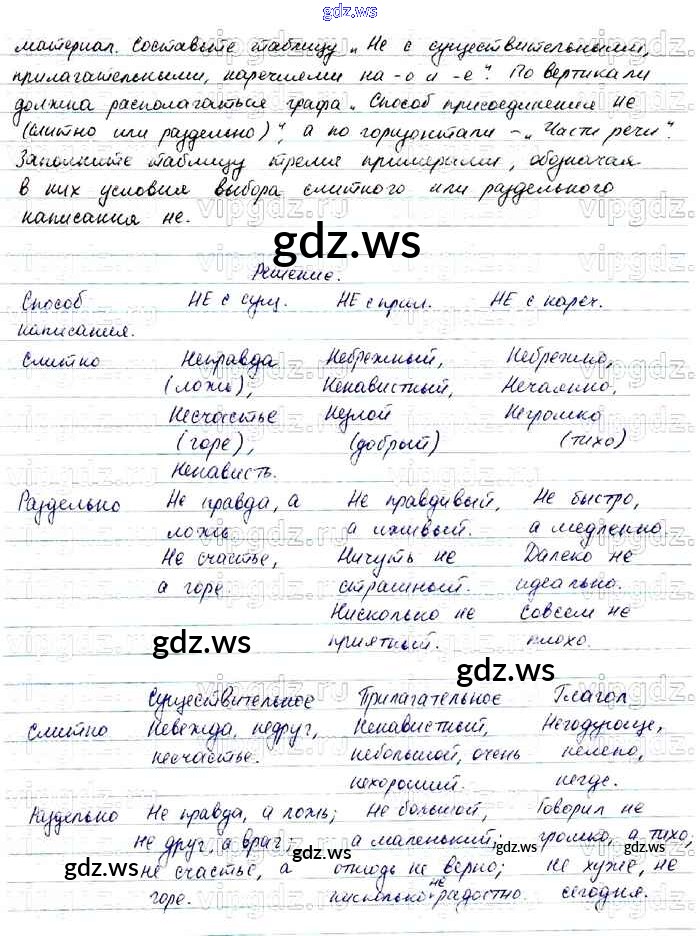 gdz.ws
материал. Составьте таблицу „Не с существительными,
прилагательными, наречиями на -о и -е". По вертикали
должна располагаться графа „Способ присоединения не
(слитно или раздельно)", а по горизонтали – „Части речи".
Заполните таблицу тремя примерами, обозначая
в них условия выбора слитного или раздельного
написания не.
gdz.ws
Решение.
Способ НЕ с сущ. НЕ с прил. НЕ с нареч.
написания.
Слитно Неправда Небрежный, Небрежно,
(ложь), Ненавистный, Нечаянно,
Несчастье Незлой Негромко
(горе), (добрый) (тихо)
Ненависть.
Раздельно Не правда, а Не правдивый, Не быстро,
ложь. а лживый. а медленно
Не счастье, Ничуть не Далеко не
а горе страшный. идеально.
Нисколько не Совсем не
приятный. плохо.
gdz.ws
gdz.ws
Существительное Прилагательное Глагол
Слитно Невежда, недруг, Ненавистный, Негодующе,
несчастье. небольшой, очень нелепо,
нехороший. негде.
Раздельно Не правда, а ложь; Не большой, Говорил не
не друг, а враг; а маленький; громко, а тихо,
не счастье, а отнюдь не верно; не хуже, не
горе. нисколько не радостно. сегодня.
gdz.ws gdz.ws gdz.ws gdz.ws
gdz.ws gdz.ws